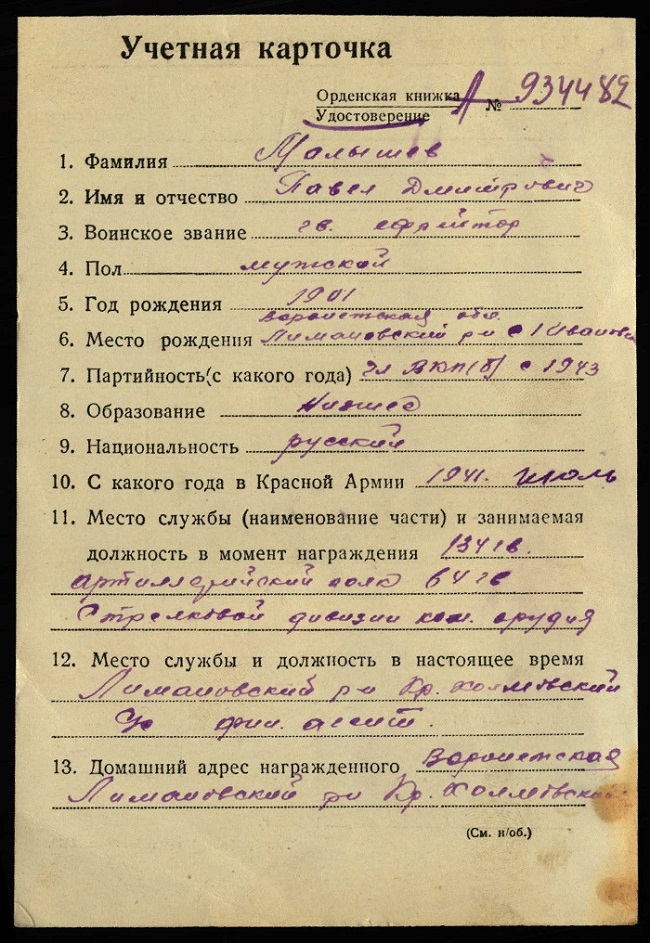 Учетная карточка
Орденская книжка
Удостоверение
А № 934482
1. Фамилия Малышев
2. Имя и отчество Павел Дмитрович
3. Воинское звание гв. ефрейтор
4. Пол мужской
5. Год рождения 1901
Воронежская обл.
6. Место рождения Лимановский р-н с
7. Партийность (с какого года) чл ВКП(б) с 1943
8. Образование Низшее
9. Национальность русский
10. С какого года в Красной Армии 1941. июль
11. Место службы (наименование части) и занимаемая
должность в момент награждения 134 гв.
артиллерийский полк 64 гв
Стрелковой дивизии ком. орудия
12. Место службы и должность в настоящее время
Лимановский р-н Кр.
13. Домашний адрес награжденного Воронежская
Лимановский р-н Кр.
(См. н/об.)